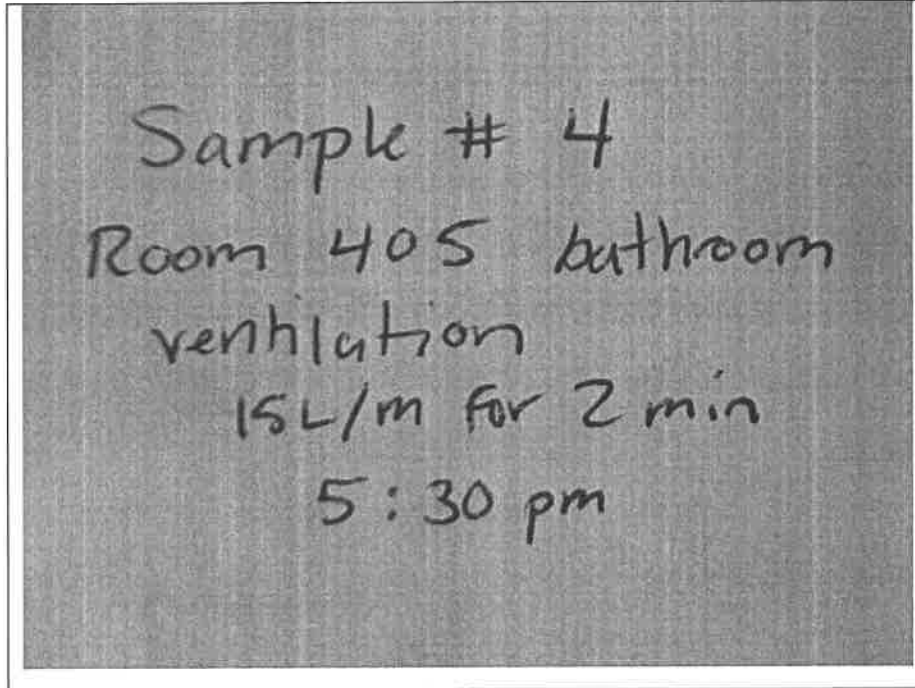 Sample # 4
Room 405 bathroom
ventilation
15L/m for 2 min
5:30 pm